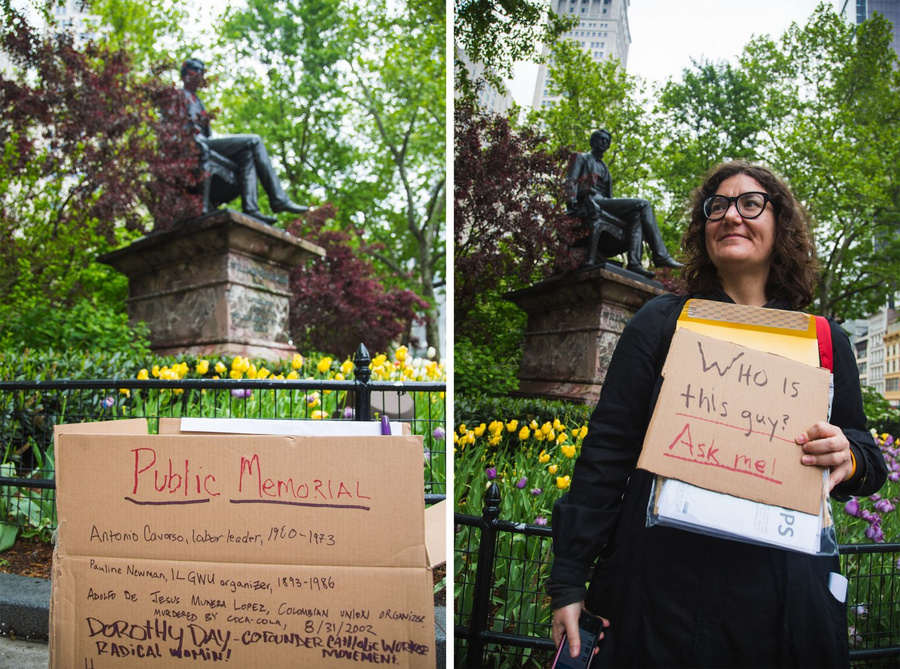 Public Memorial
Antonio Cavorso, labor leader, 1960-1973
Pauline Newman, ILGWU organizer, 1893-1986
Adolfo De Jesus Munera Lopez, Colombian union organizer
murdered by Coca-Cola, 8/31/2002
DOROTHY DAY - COFOUNDER CATHOLIC WORKER
RADICAL WOMIN! MOVEMENT
WHO IS
this guy?
Ask me!
PS